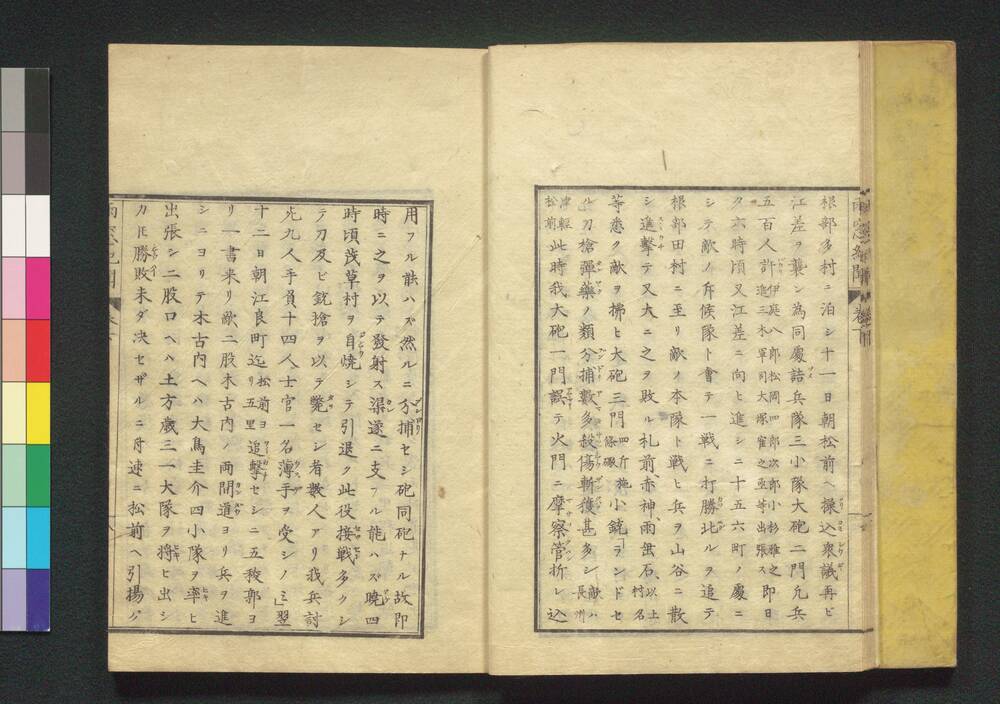 根部多村ニ泊シ十一日朝松前ヘ操込衆議再ビ
江差ヲ襲ン為同處詰兵隊三小隊大砲二門凡兵
五百人許伊庭八郎松岡四郎次郎小杉雅之進三木軍司大塚雀之丞等出張ス即日
夕六時頃又江差ニ向ヒ進シニ十五六町ノ處ニ
シテ敵ノ斥候隊ト會テ一戰ニ打勝北ルヲ追テ
根部田村ニ至リ敵ノ本隊ト戰ヒ兵ヲ山谷ニ散
シ進撃テ又大ニ之ヲ敗ル札前、赤神、雨垂石、以上村名
等悉ク敵ヲ拂ヒ大砲三門四斤施條礟小銃ランドセ
ル刀槍彈藥ノ類分捕數多殺傷斬獲甚多シ敵ハ長州
津輕松前此時我大砲一門誤テ火門ニ摩察管折レ込
用フル能ハズ然ルニ分捕セシ砲同砲ナル故即
時ニ之ヲ以テ發射ス渠遂ニ支フル能ハズ曉四
時頃茂草村ヲ自燒シテ引退ク此役接戰多クシ
テ刀及ビ銃搶ヲ以テ斃セシ者數人アリ我兵討
死九人手負十四人士官一名薄手ヲ受シノミ」翌
十二日朝江良町迄松前ヨリ五里追撃セシニ五稜郭ヨ
リ一書来リ敵二股木古内ノ両間道ヨリ兵ヲ進
シニヨリテ木古内ヘハ大鳥圭介四小隊ヲ率ヒ
出張シ二股口ヘハ土方歳三一大隊ヲ将ヒ出シ
カ𪜈勝敗未ダ決セザルニ付速ニ松前ヘ引揚ゲ